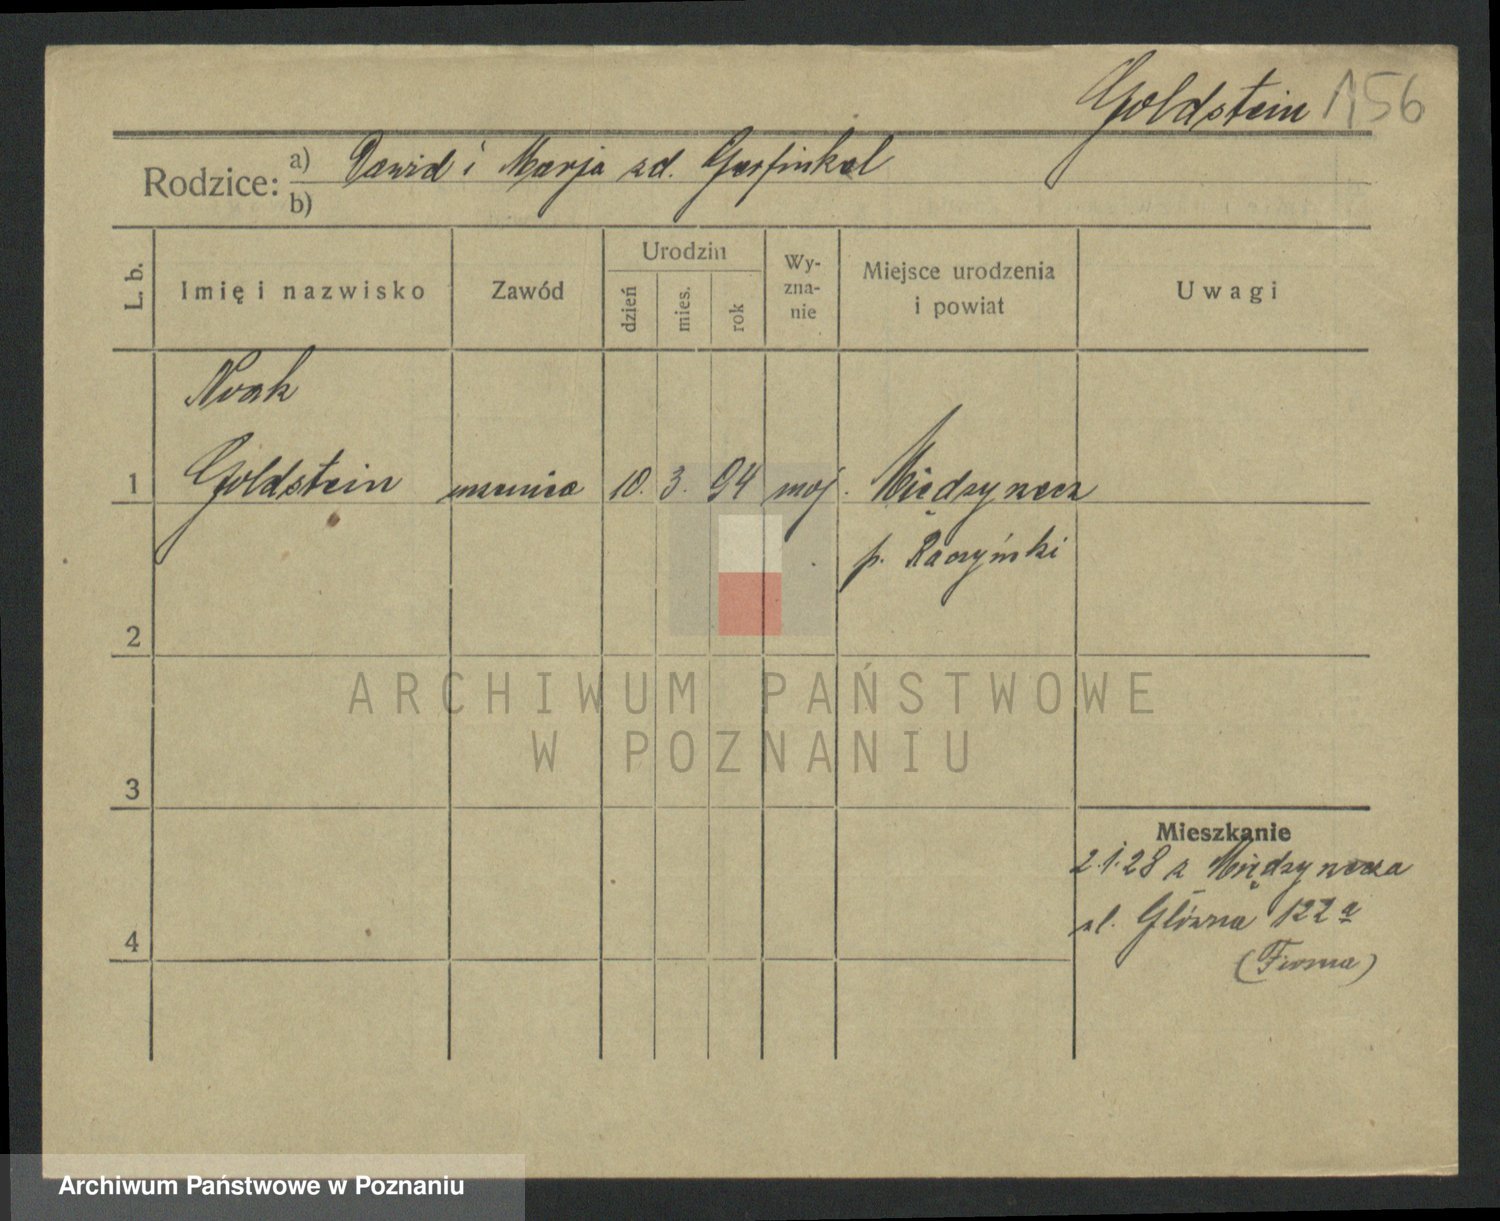 Goldstein 156
Rodzice: a) Dawid i Marja zd. Garfinkel
b)
L. b. Imię i nazwisko Zawód Urodzin dzień mies. rok Wyznanie Miejsce urodzenia i powiat Uwagi
Noak
1 Goldstein 10. 3. 94 moj. Międzyrzecz
p. Radzyński
2
ARCHIWUM PAŃSTWOWE
W POZNANIU
3
Mieszkanie
2.1.28 z Międzyrzecza
ul. Główna 122 a
4
(Firma)
Archiwum Państwowe w Poznaniu